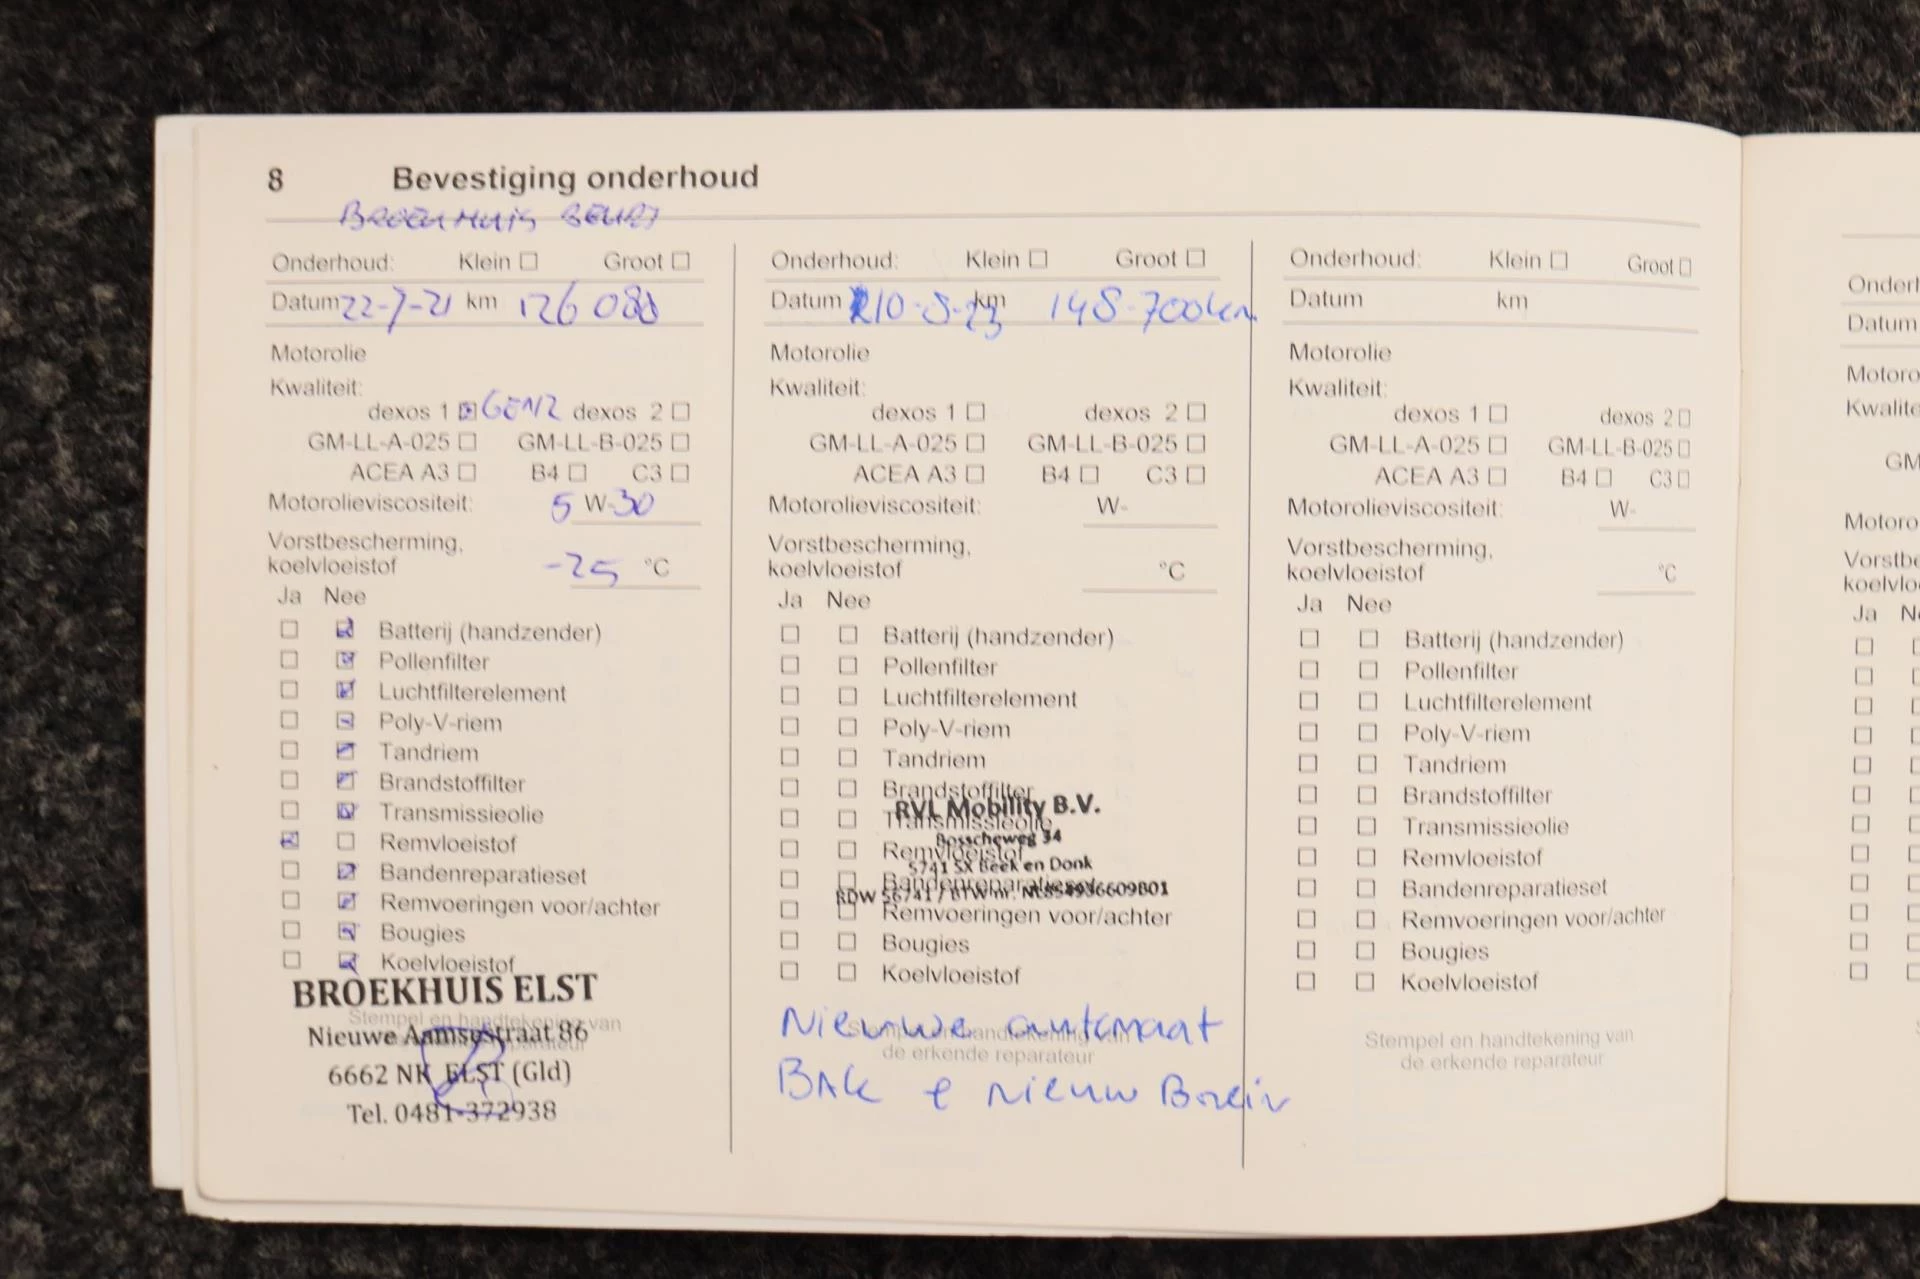 8 Bevestiging onderhoud
BROEKHUIS BEURT
Onderhoud: Klein Groot
Datum 22-7-21 km 126 088
Motorolie
Kwaliteit:
dexos 1 GEN2 dexos 2
GM-LL-A-025 GM-LL-B-025
ACEA A3 B4 C3
Motorolieviscositeit: 5 W-30
Vorstbescherming,
koelvloeistof -25 °C
Ja Nee
Batterij (handzender)
Pollenfilter
Luchtfilterelement
Poly-V-riem
Tandriem
Brandstoffilter
Transmissieolie
Remvloeistof
Bandenreparatieset
Remvoeringen voor/achter
Bougies
Koelvloeistof
BROEKHUIS ELST
Stempel en handtekening van
Nieuwe Aamsestraat 86
reparateur
6662 NK ELST (Gld)
Tel. 0481-372938
Onderhoud: Klein Groot
Datum 10-8-23 km 148-700km
Motorolie
Kwaliteit:
dexos 1 dexos 2
GM-LL-A-025 GM-LL-B-025
ACEA A3 B4 C3
Motorolieviscositeit: W-
Vorstbescherming,
koelvloeistof °C
Ja Nee
Batterij (handzender)
Pollenfilter
Luchtfilterelement
Poly-V-riem
Tandriem
Brandstoffilter
RVL Mobility B.V.
Transmissieolie
Bosscheweg 34
Remvloeistof
5741 SX Beek en Donk
Bandenreparatieset
RDW 56741 / BTW nr. NL854936609B01
Remvoeringen voor/achter
Bougies
Koelvloeistof
Nieuwe automaat
Stempel en handtekening van
de erkende reparateur
BAK + nieuw Brein
Onderhoud: Klein Groot
Datum km
Motorolie
Kwaliteit:
dexos 1 dexos 2
GM-LL-A-025 GM-LL-B-025
ACEA A3 B4 C3
Motorolieviscositeit: W-
Vorstbescherming,
koelvloeistof °C
Ja Nee
Batterij (handzender)
Pollenfilter
Luchtfilterelement
Poly-V-riem
Tandriem
Brandstoffilter
Transmissieolie
Remvloeistof
Bandenreparatieset
Remvoeringen voor/achter
Bougies
Koelvloeistof
Stempel en handtekening van
de erkende reparateur
Onderh
Datum
Motoro
Kwalite
GM
Motoro
Vorstbe
koelvlo
Ja N